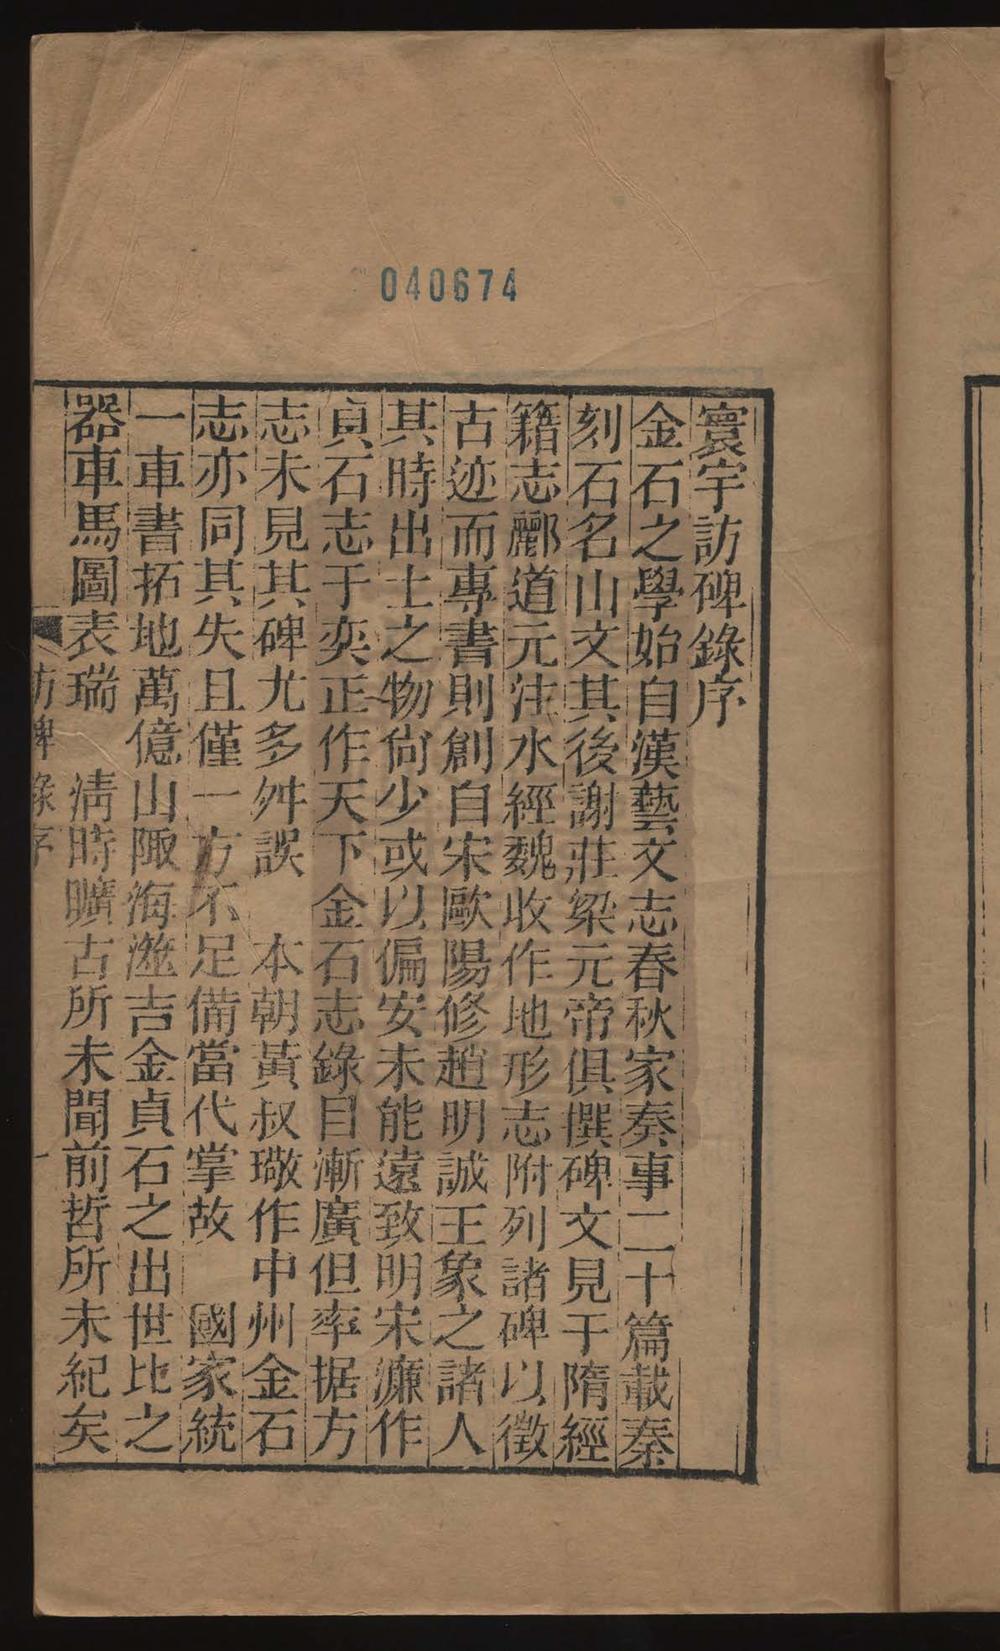 040674
寰宇訪碑錄序
金石之學始自漢藝文志春秋家奏事二十篇載秦
刻石名山文其後謝莊梁元帝俱撰碑文見于隋經
籍志酈道元注水經魏收作地形志附列諸碑以徵
古迹而專書則創自宋歐陽修趙明誠王象之諸人
其時出土之物尙少或以偏安未能遠致明宋濂作
貞石志于奕正作天下金石志錄目漸廣但率据方
志未見其碑尤多舛誤 本朝黃叔璥作中州金石
志亦同其失且僅一方不足備當代掌故 國家統
一車書拓地萬億山陬海澨吉金貞石之出世比之
器車馬圖表瑞 淸時曠古所未聞前哲所未紀矣
訪碑錄序 一